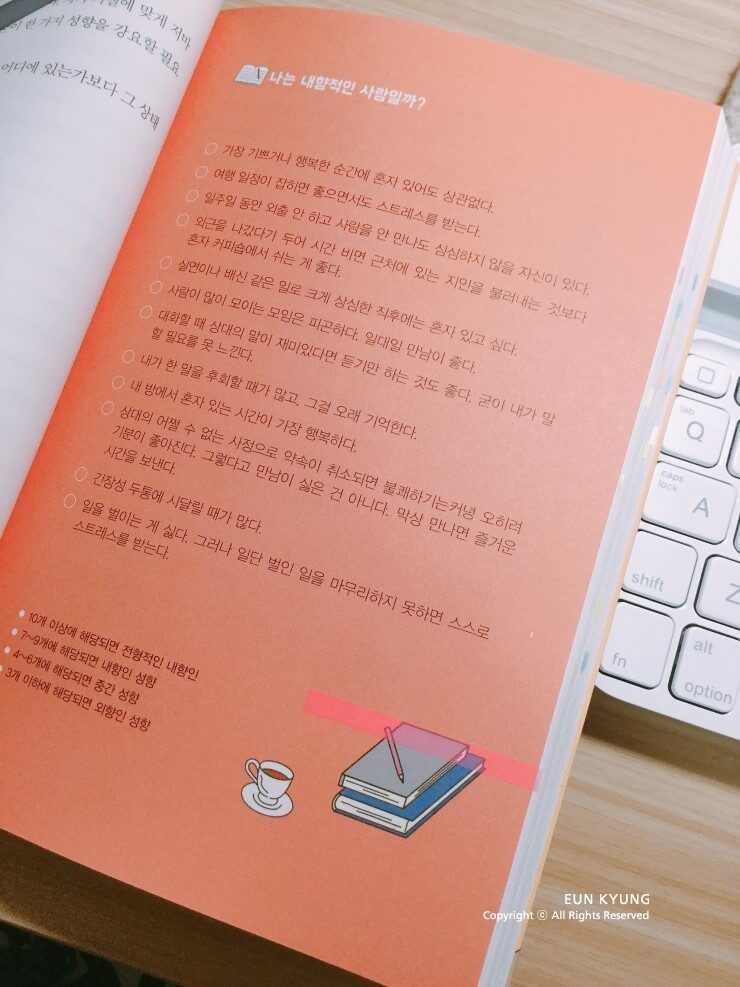 맞게 저마
한 가지 성향을 강요할 필요
어디에 있는가보다 그 상태
나는 내향적인 사람일까?
가장 기쁘거나 행복한 순간에 혼자 있어도 상관없다.
여행 일정이 잡히면 좋으면서도 스트레스를 받는다.
일주일 동안 외출 안 하고 사람을 안 만나도 심심하지 않을 자신이 있다.
외근을 나갔다가 두어 시간 비면 근처에 있는 지인을 불러내는 것보다
혼자 커피숍에서 쉬는 게 좋다.
실연이나 배신 같은 일로 크게 상심한 직후에는 혼자 있고 싶다.
사람이 많이 모이는 모임은 피곤하다. 일대일 만남이 좋다.
대화할 때 상대의 말이 재미있다면 듣기만 하는 것도 좋다. 굳이 내가 말
할 필요를 못 느낀다.
내가 한 말을 후회할 때가 많고, 그걸 오래 기억한다.
내 방에서 혼자 있는 시간이 가장 행복하다.
상대의 어쩔 수 없는 사정으로 약속이 취소되면 불쾌하기는커녕 오히려
기분이 좋아진다. 그렇다고 만남이 싫은 건 아니다. 막상 만나면 즐거운
시간을 보낸다.
긴장성 두통에 시달릴 때가 많다.
일을 벌이는 게 싫다. 그러나 일단 벌인 일을 마무리하지 못하면 스스로
스트레스를 받는다.
10개 이상에 해당되면 전형적인 내향인
7~9개에 해당되면 내향인 성향
4~6개에 해당되면 중간 성향
3개 이하에 해당되면 외향인 성향
tab
Q
caps
lock
A
shift
Z
fn
alt
option
EUN KYUNG
Copyright ⓒ All Rights Reserved